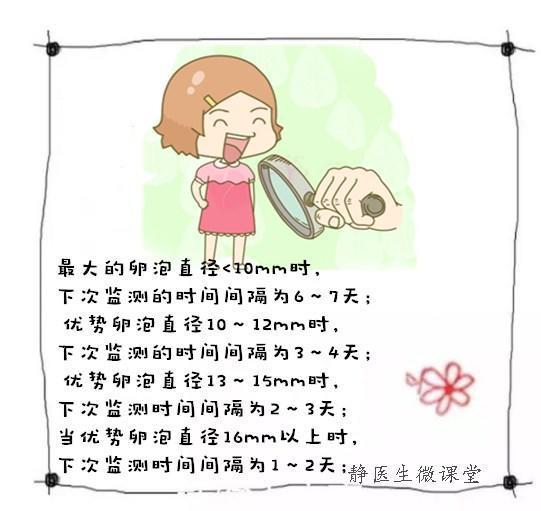 最大的卵泡直径<10mm时，
下次监测的时间间隔为6~7天；
优势卵泡直径10~12mm时，
下次监测的时间间隔为3~4天；
优势卵泡直径13~15mm时，
下次监测时间间隔为2~3天；
当优势卵泡直径16mm以上时，
下次监测时间间隔为1~2天；
静医生微课堂